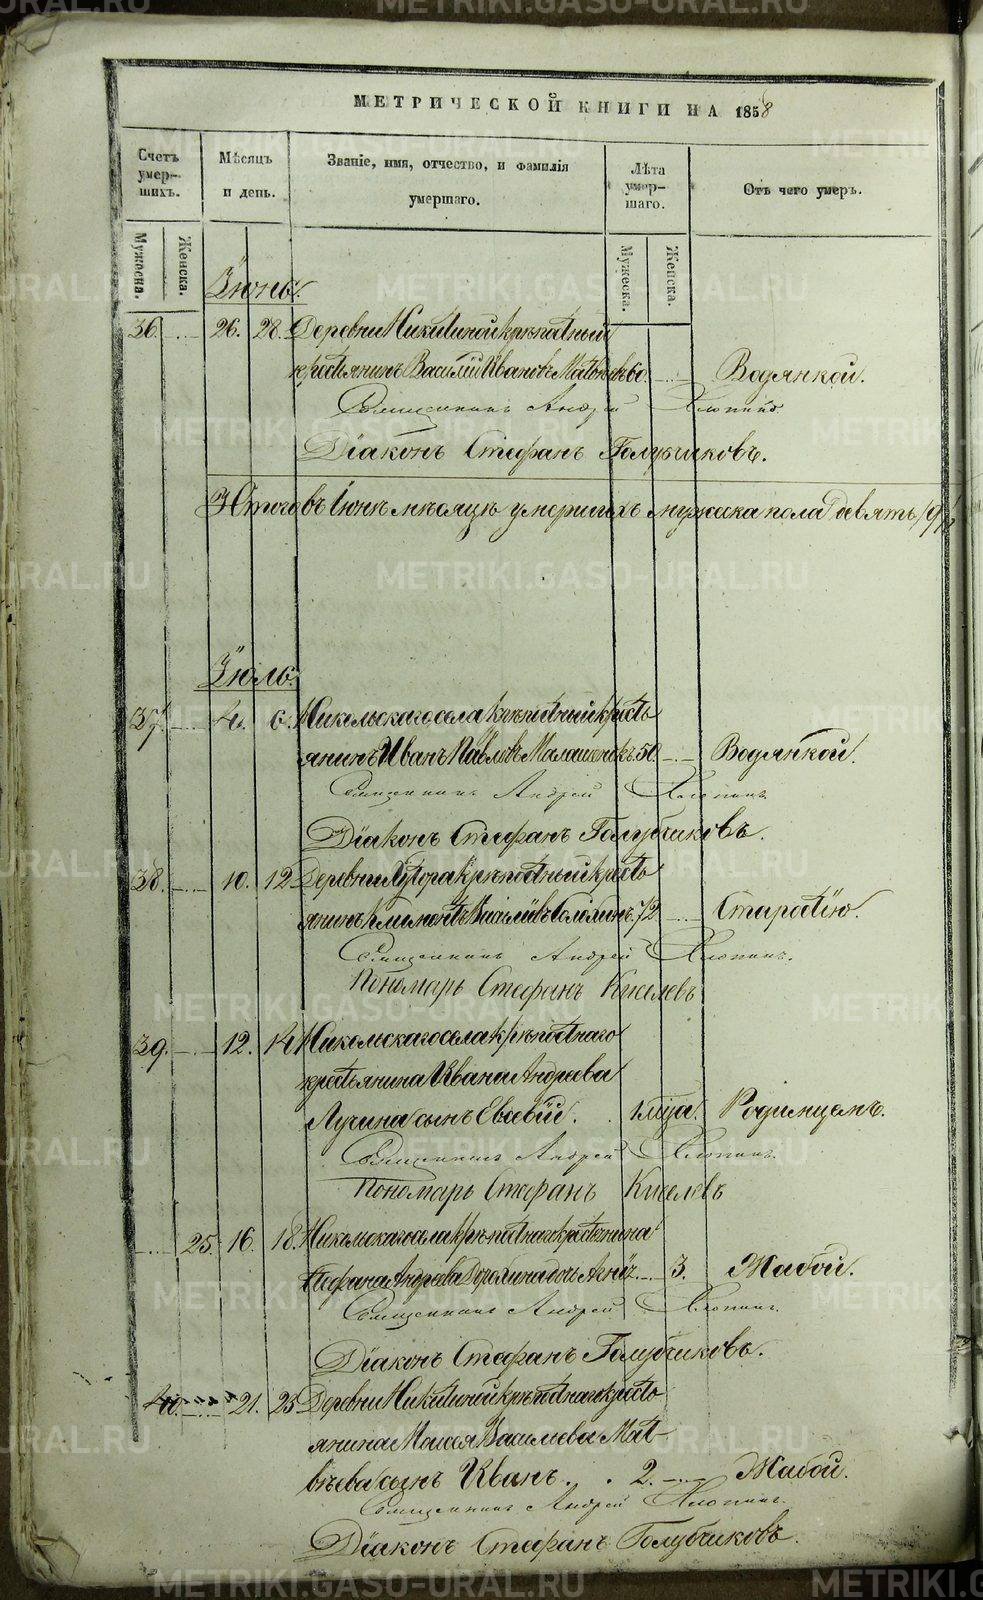 МЕТРИЧЕСКОЙ КНИГИ НА 1858
Счетъ умер-шихъ.
Мѣсяцъ и день.
Званіе, имя, отчество, и фамилія умершаго.
Лѣта умер-шаго.
Отъ чего умеръ.
Мужеска. Женска.
Мужеска. Женска.
Іюнь.
36. 26. 28. Деревни Никитиной крѣпостный
крестьянинъ Василій Ивановъ Матвѣевъ 60. Водянкой.
Священникъ Андрей
Діаконъ Стефанъ Голубчиковъ.
Итого въ Іюнѣ мѣсяцѣ умершихъ мужеска пола девять /9/
Іюль.
37. 4. 6. Никольскаго села крѣпостный кресть
янинъ Иванъ Павловъ 50. Водянкой.
Священникъ Андрей
Діаконъ Стефанъ Голубчиковъ.
38. 10. 12. Деревни Хутора крѣпостный кресть
янинъ Васильевъ 72 Старостію.
Священникъ Андрей
Пономарь Стефанъ Киселевъ
39. 12. 14. Никольскаго села крѣпостнаго
крестьянина Ивана Андреева
Лучина сынъ Евсевій. 1 мца. Родимцемъ.
Священникъ Андрей
Пономарь Стефанъ Киселевъ
25. 16. 18. Никольскаго села крѣпостнаго крестьянина
Стефана Андреева дочь 3. Жабой.
Священникъ Андрей
Діаконъ Стефанъ Голубчиковъ.
40. 21. 25. Деревни Никитиной крѣпостнаго кресть
янина Моисея Васильева Мат-
вѣева сынъ Иванъ. 2. Жабой.
Священникъ Андрей
Діаконъ Стефанъ Голубчиковъ.
METRIKI.GASO-URAL.RU